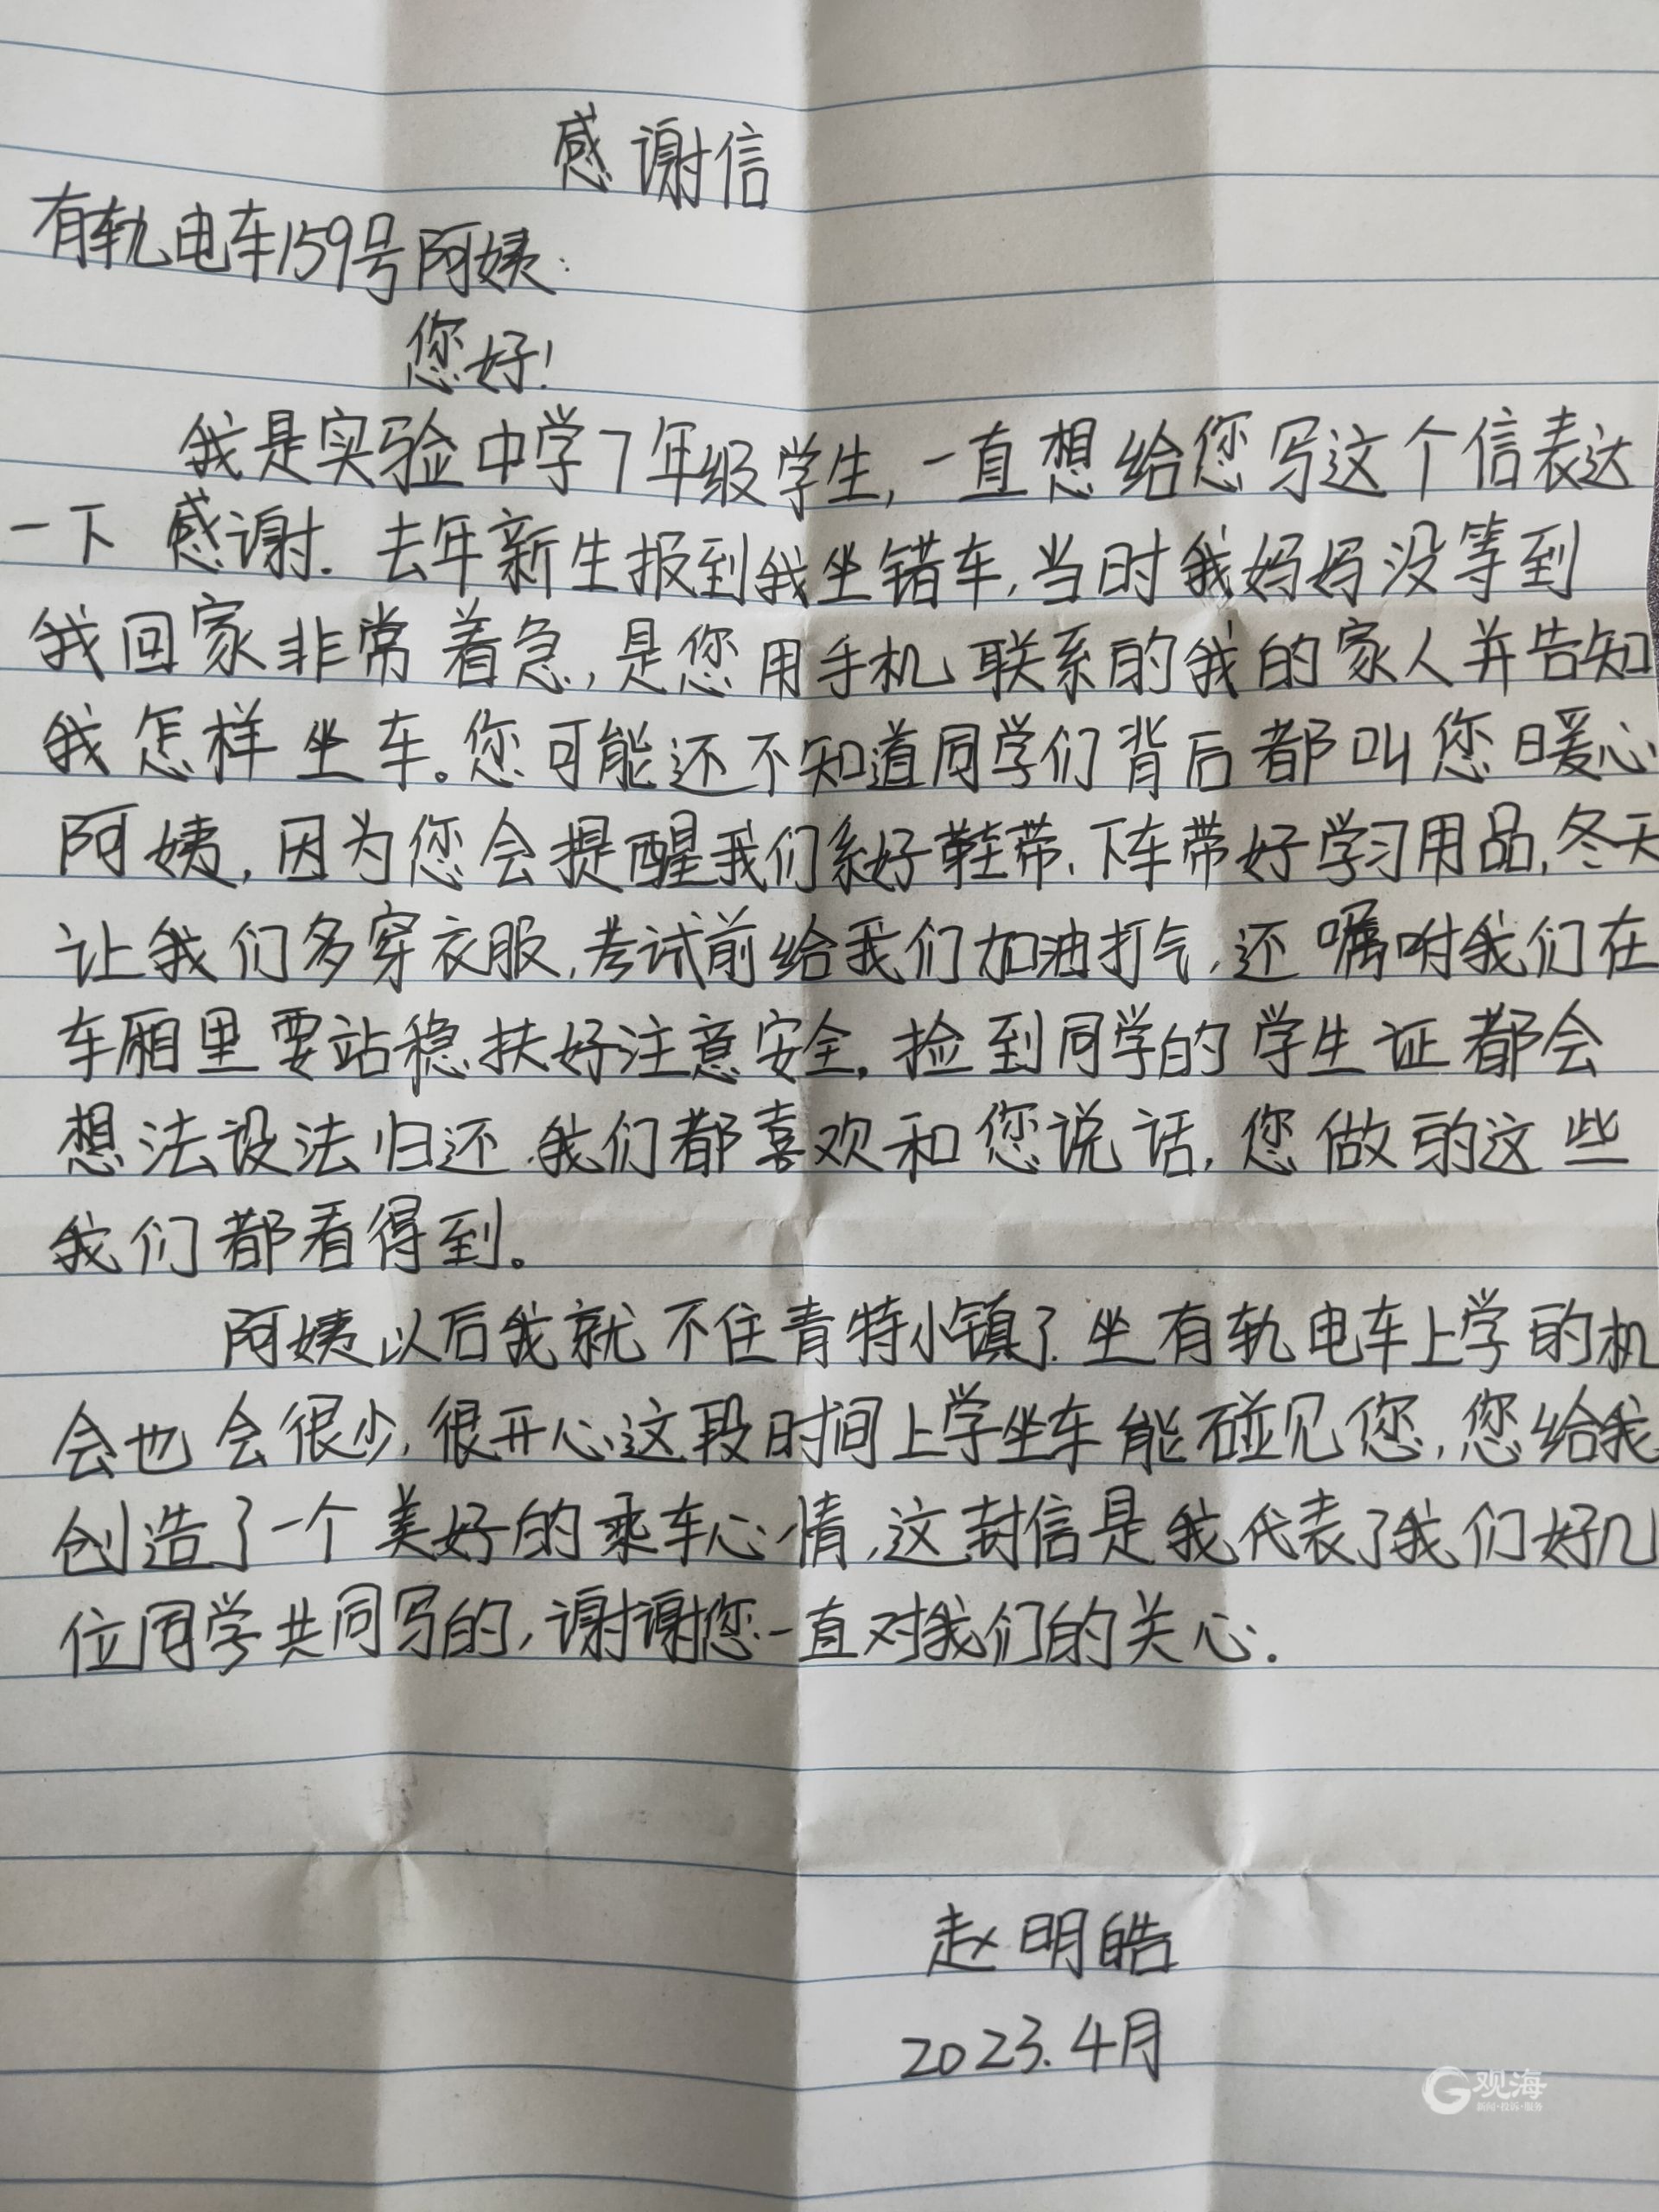 感谢信
有轨电车159号阿姨:
您好!
我是实验中学7年级学生,一直想给您写这个信表达
一下感谢.去年新生报到我坐错车,当时我妈妈没等到
我回家非常着急,是您用手机联系的我的家人并告知
我怎样坐车。您可能还不知道同学们背后都叫您暖心
阿姨,因为您会提醒我们系好鞋带、下车带好学习用品,冬天
让我们多穿衣服,考试前给我们加油打气,还嘱咐我们在
车厢里要站稳扶好注意安全.捡到同学的学生证都会
想法设法归还.我们都喜欢和您说话,您做的这些
我们都看得到。
阿姨以后我就不住青特小镇了.坐有轨电车上学的机
会也会很少,很开心这段时间上学坐车能碰见您,您给我
创造了一个美好的乘车心情,这封信是我代表了我们好几
位同学共同写的,谢谢您一直对我们的关心.
赵明皓
2023.4月
观海
新闻·投诉·服务